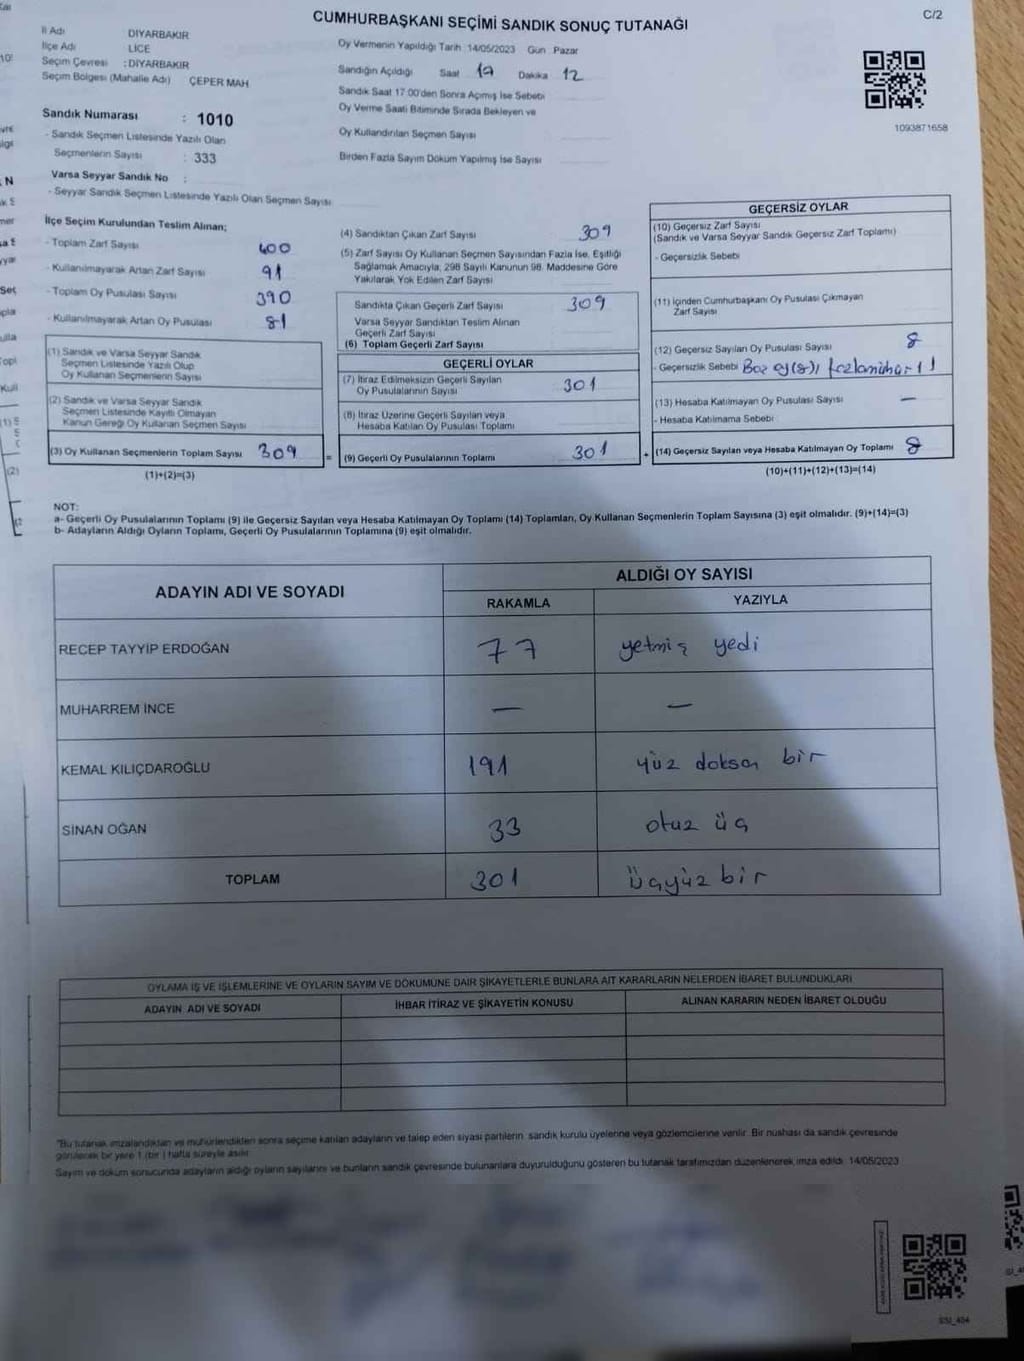 C/2
CUMHURBAŞKANI SEÇİMİ SANDIK SONUÇ TUTANAĞI
İl Adı DİYARBAKIR
İlçe Adı LİCE
Seçim Çevresi : DİYARBAKIR
Seçim Bölgesi (Mahalle Adı) ÇEPER MAH
Sandık Numarası : 1010
- Sandık Seçmen Listesinde Yazılı Olan
Seçmenlerin Sayısı : 333
Varsa Seyyar Sandık No :
- Seyyar Sandık Seçmen Listesinde Yazılı Olan Seçmen Sayısı
Oy Vermenin Yapıldığı Tarih 14/05/2023 Gün Pazar
Sandığın Açıldığı Saat 17 Dakika 12
Sandık Saat 17:00'den Sonra Açımış İse Sebebi
Oy Verme Saati Bitiminde Sırada Bekleyen ve
Oy Kullandırılan Seçmen Sayısı
Birden Fazla Sayım Döküm Yapılmış İse Sayısı
1093871658
İlçe Seçim Kurulundan Teslim Alınan;
- Toplam Zarf Sayısı 400
- Kullanılmayarak Artan Zarf Sayısı 91
- Toplam Oy Pusulası Sayısı 390
- Kullanılmayarak Artan Oy Pusulası 81
(1) Sandık ve Varsa Seyyar Sandık
Seçmen Listesinde Yazılı Olup
Oy Kullanan Seçmenlerin Sayısı
(2) Sandık ve Varsa Seyyar Sandık
Seçmen Listesinde Kayıtlı Olmayan
Kanun Gereği Oy Kullanan Seçmen Sayısı
(3) Oy Kullanan Seçmenlerin Toplam Sayısı 309
(1)+(2)=(3)
(4) Sandıktan Çıkan Zarf Sayısı 309
(5) Zarf Sayısı Oy Kullanan Seçmen Sayısından Fazla İse, Eşitliği
Sağlamak Amacıyla, 298 Sayılı Kanunun 98. Maddesine Göre
Yakılarak Yok Edilen Zarf Sayısı
Sandıkta Çıkan Geçerli Zarf Sayısı 309
Varsa Seyyar Sandıktan Teslim Alınan
Geçerli Zarf Sayısı
(6) Toplam Geçerli Zarf Sayısı
GEÇERLİ OYLAR
(7) İtiraz Edilmeksizin Geçerli Sayılan
Oy Pusulalarının Sayısı 301
(8) İtiraz Üzerine Geçerli Sayılan veya
Hesaba Katılan Oy Pusulası Toplamı
= (9) Geçerli Oy Pusulalarının Toplamı 301
GEÇERSİZ OYLAR
(10) Geçersiz Zarf Sayısı
(Sandık ve Varsa Seyyar Sandık Geçersiz Zarf Toplamı)
- Geçersizlik Sebebi
(11) İçinden Cumhurbaşkanı Oy Pusulası Çıkmayan
Zarf Sayısı
(12) Geçersiz Sayılan Oy Pusulası Sayısı 8
- Geçersizlik Sebebi
(13) Hesaba Katılmayan Oy Pusulası Sayısı —
- Hesaba Katılmama Sebebi
+ (14) Geçersiz Sayılan veya Hesaba Katılmayan Oy Toplamı 8
(10)+(11)+(12)+(13)=(14)
NOT:
a- Geçerli Oy Pusulalarının Toplamı (9) ile Geçersiz Sayılan veya Hesaba Katılmayan Oy Toplamı (14) Toplamları, Oy Kullanan Seçmenlerin Toplam Sayısına (3) eşit olmalıdır. (9)+(14)=(3)
b- Adayların Aldığı Oyların Toplamı, Geçerli Oy Pusulalarının Toplamına (9) eşit olmalıdır.
ADAYIN ADI VE SOYADI
ALDIĞI OY SAYISI
RAKAMLA YAZIYLA
RECEP TAYYİP ERDOĞAN 77 yetmiş yedi
MUHARREM İNCE — —
KEMAL KILIÇDAROĞLU 191 yüz doksan bir
SİNAN OĞAN 33 otuz üç
TOPLAM 301 üçyüz bir
OYLAMA İŞ VE İŞLEMLERİNE VE OYLARIN SAYIM VE DÖKÜMÜNE DAİR ŞİKAYETLERLE BUNLARA AİT KARARLARIN NELERDEN İBARET BULUNDUKLARI
ADAYIN ADI VE SOYADI İHBAR İTİRAZ VE ŞİKAYETİN KONUSU ALINAN KARARIN NEDEN İBARET OLDUĞU
"Bu tutanak imzalandıktan ve mühürlendikten sonra seçime katılan adayların ve talep eden siyasi partilerin sandık kurulu üyelerine veya gözlemcilerine verilir. Bir nüshası da sandık çevresinde
görülecek bir yere 1 (bir) hafta süreyle asılır.
Sayım ve döküm sonucunda adayların aldığı oyların sayılarını ve bunların sandık çevresinde bulunanlara duyurulduğunu gösteren bu tutanak tarafımızdan düzenlenerek imza edildi. 14/05/2023